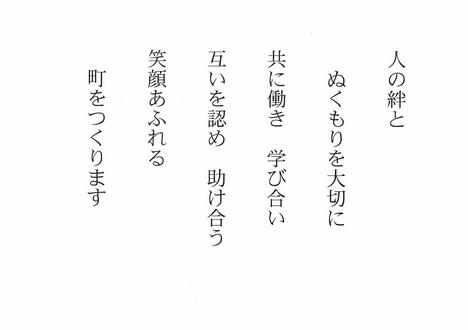 人の絆と
ぬくもりを大切に
共に働き　学び合い
互いを認め　助け合う
笑顔あふれる
町をつくります